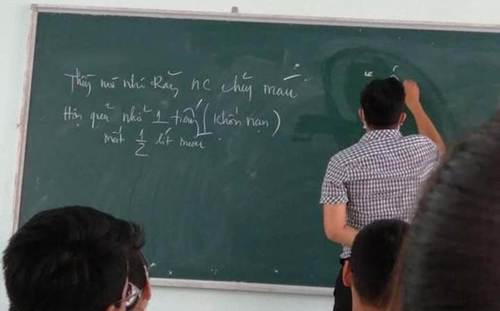 Thầy mô nhi Răng nc chảy máu
Hôn quê nhổ 1 tiền (khốn nạn)
mất 1/2 lít máu